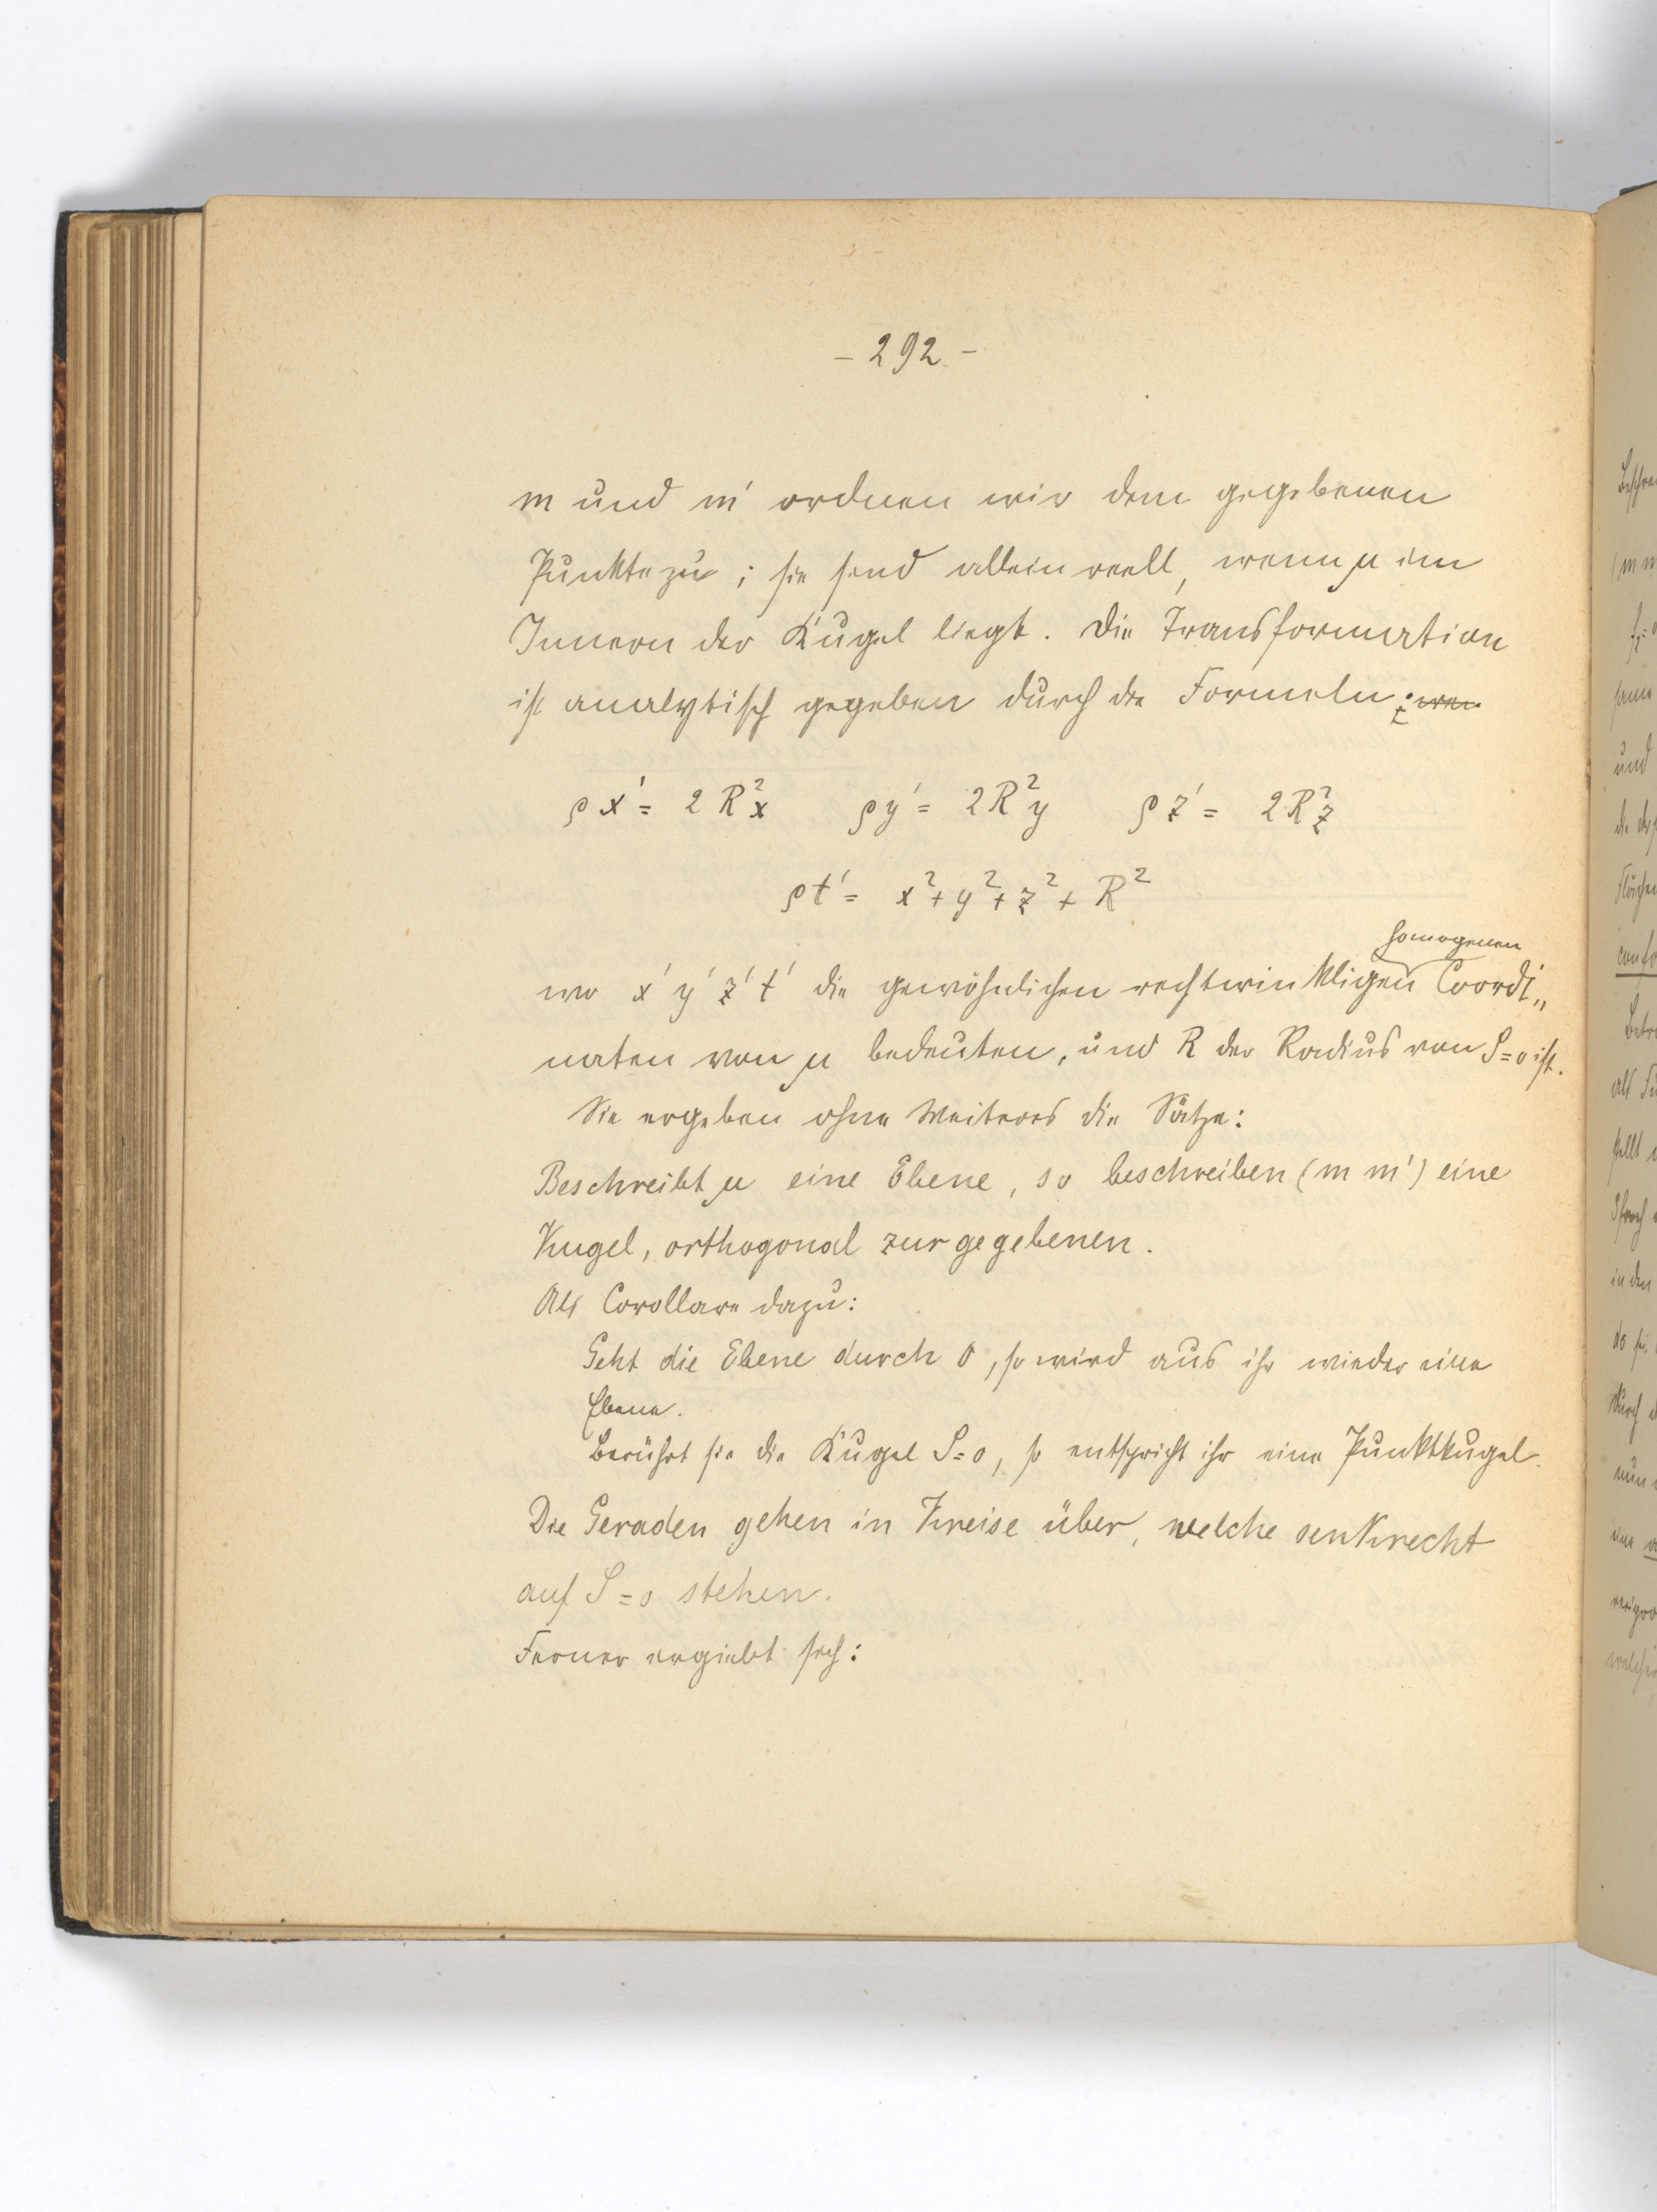 - 292 -
m und m' ordnen wir dem gegebenen
Punkte zu; sie sind allein reell, wenn μ im
Innern der Kugel liegt. Die Transformation
ist analytisch gegeben durch die Formeln:
ρx' = 2R²x ρy' = 2R²y ρz' = 2R²z
ρt' = x² + y² + z² + R²
homogenen
wo x' y' z' t' die gewöhnlichen rechtwinkligen Coordi„
naten von μ bedeuten, und R der Radius von S=0 ist.
Sie ergeben ohne Weiteres die Sätze:
Beschreibt μ eine Ebene, so beschreiben (m m') eine
Kugel, orthogonal zur gegebenen.
Als Corollare dazu:
Geht die Ebene durch O, so wird aus ihr wieder eine
Ebene.
Berührt sie die Kugel S=0, so entspricht ihr eine Punktkugel.
Die Geraden gehen in Kreise über, welche senkrecht
auf S=0 stehen.
Ferner ergiebt sich: